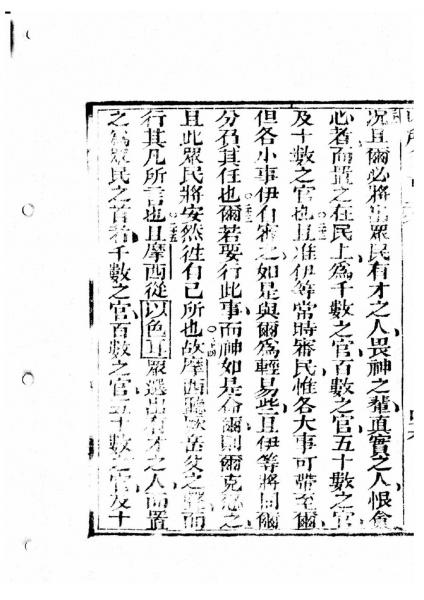 况且爾必將當眾民有才之人畏神之輩真實之人恨貪
必者而置之在民上為千數之官百數之官五十數之官
及十數之官也且准伊等常時審民惟各大事可帶至爾
但各小事伊自審之如是與爾為輕易些且伊等將同爾
分負其任也爾若要行此事而神如是命爾則爾克忍之
且此眾民將安然徃自己所也故摩西聽厥岳父之聲而
行其凡所言也且摩西從以色耳眾選出有才之人而置
之為眾民之首者千數之官百數之官五十數之官及十